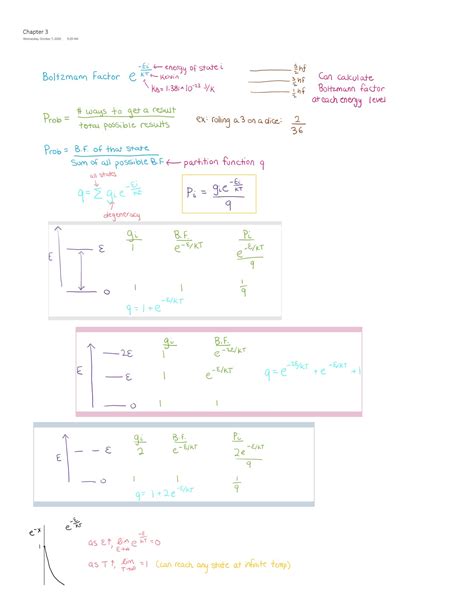 Chapter 3
Wednesday, October 7, 2020
Boltzmann Factor e^(-Ei/kT) ← energy of state i
← Kelvin
kB = 1.381×10^-23 J/K
5/2 hf
3/2 hf
1/2 hf
Can calculate
Boltzmann factor
at each energy level
Prob = # ways to get a result / total possible results
ex: rolling a 3 on a dice: 2/36
Prob = B.F. of that state / Sum of all possible B.F. ← partition function q
all states
q = Σ gi e^(-Ei/kT)
degeneracy
Pi = gi e^(-Ei/kT) / q
gi B.F. Pi
E ε 1 e^(-ε/kT) e^(-ε/kT)/q
0 1 1 1/q
q = 1 + e^(-ε/kT)
gi B.F.
2ε 1 e^(-2ε/kT)
E ε 1 e^(-ε/kT) q = e^(-2ε/kT) + e^(-ε/kT) + 1
0 1 1
gi B.F. Pi
E ε 2 e^(-ε/kT) 2e^(-ε/kT)/q
0 1 1 1/q
q = 1 + 2e^(-ε/kT)
e^-x
1
as E↑, lim E→∞ = 0
as T↑, lim T→∞ = 1 (can reach any state at infinite temp)